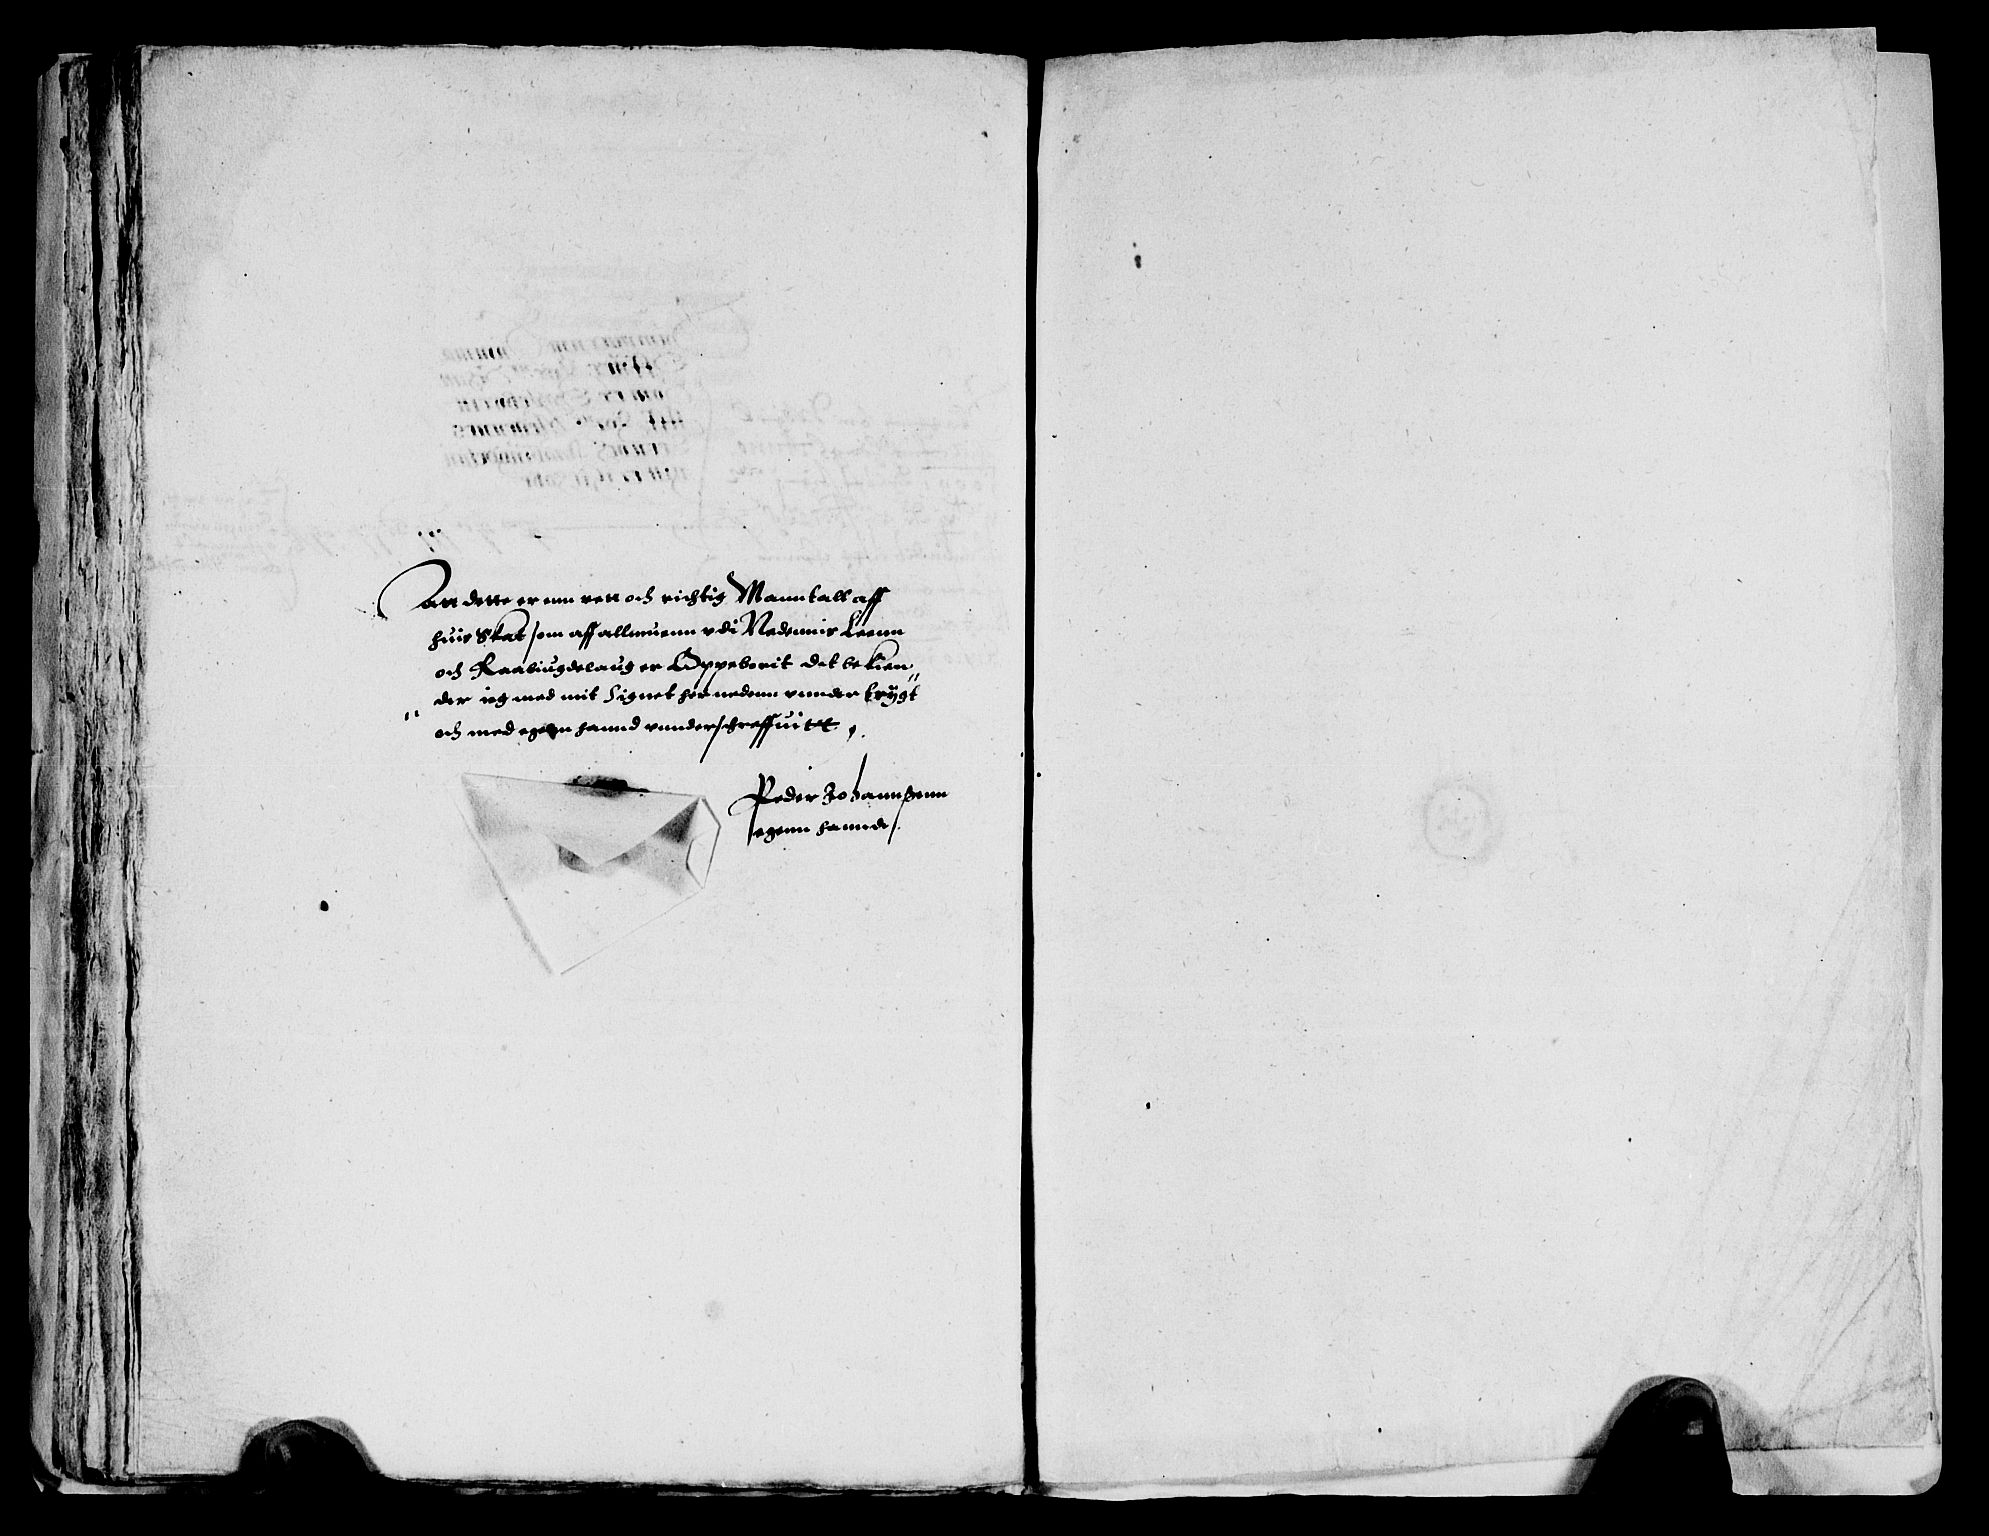 Att dette er enn rett och richtig Manntall aff
huis Skat som aff allmuenn vdi Nedennis Leenn
och Raabiugdelaug er Oppeborit det bekien
der ieg med mit Signet her nedenn vnnder trygt
och med egenn hannd vnnderschreffuitt
Peder Johannßenn
egenn hannd